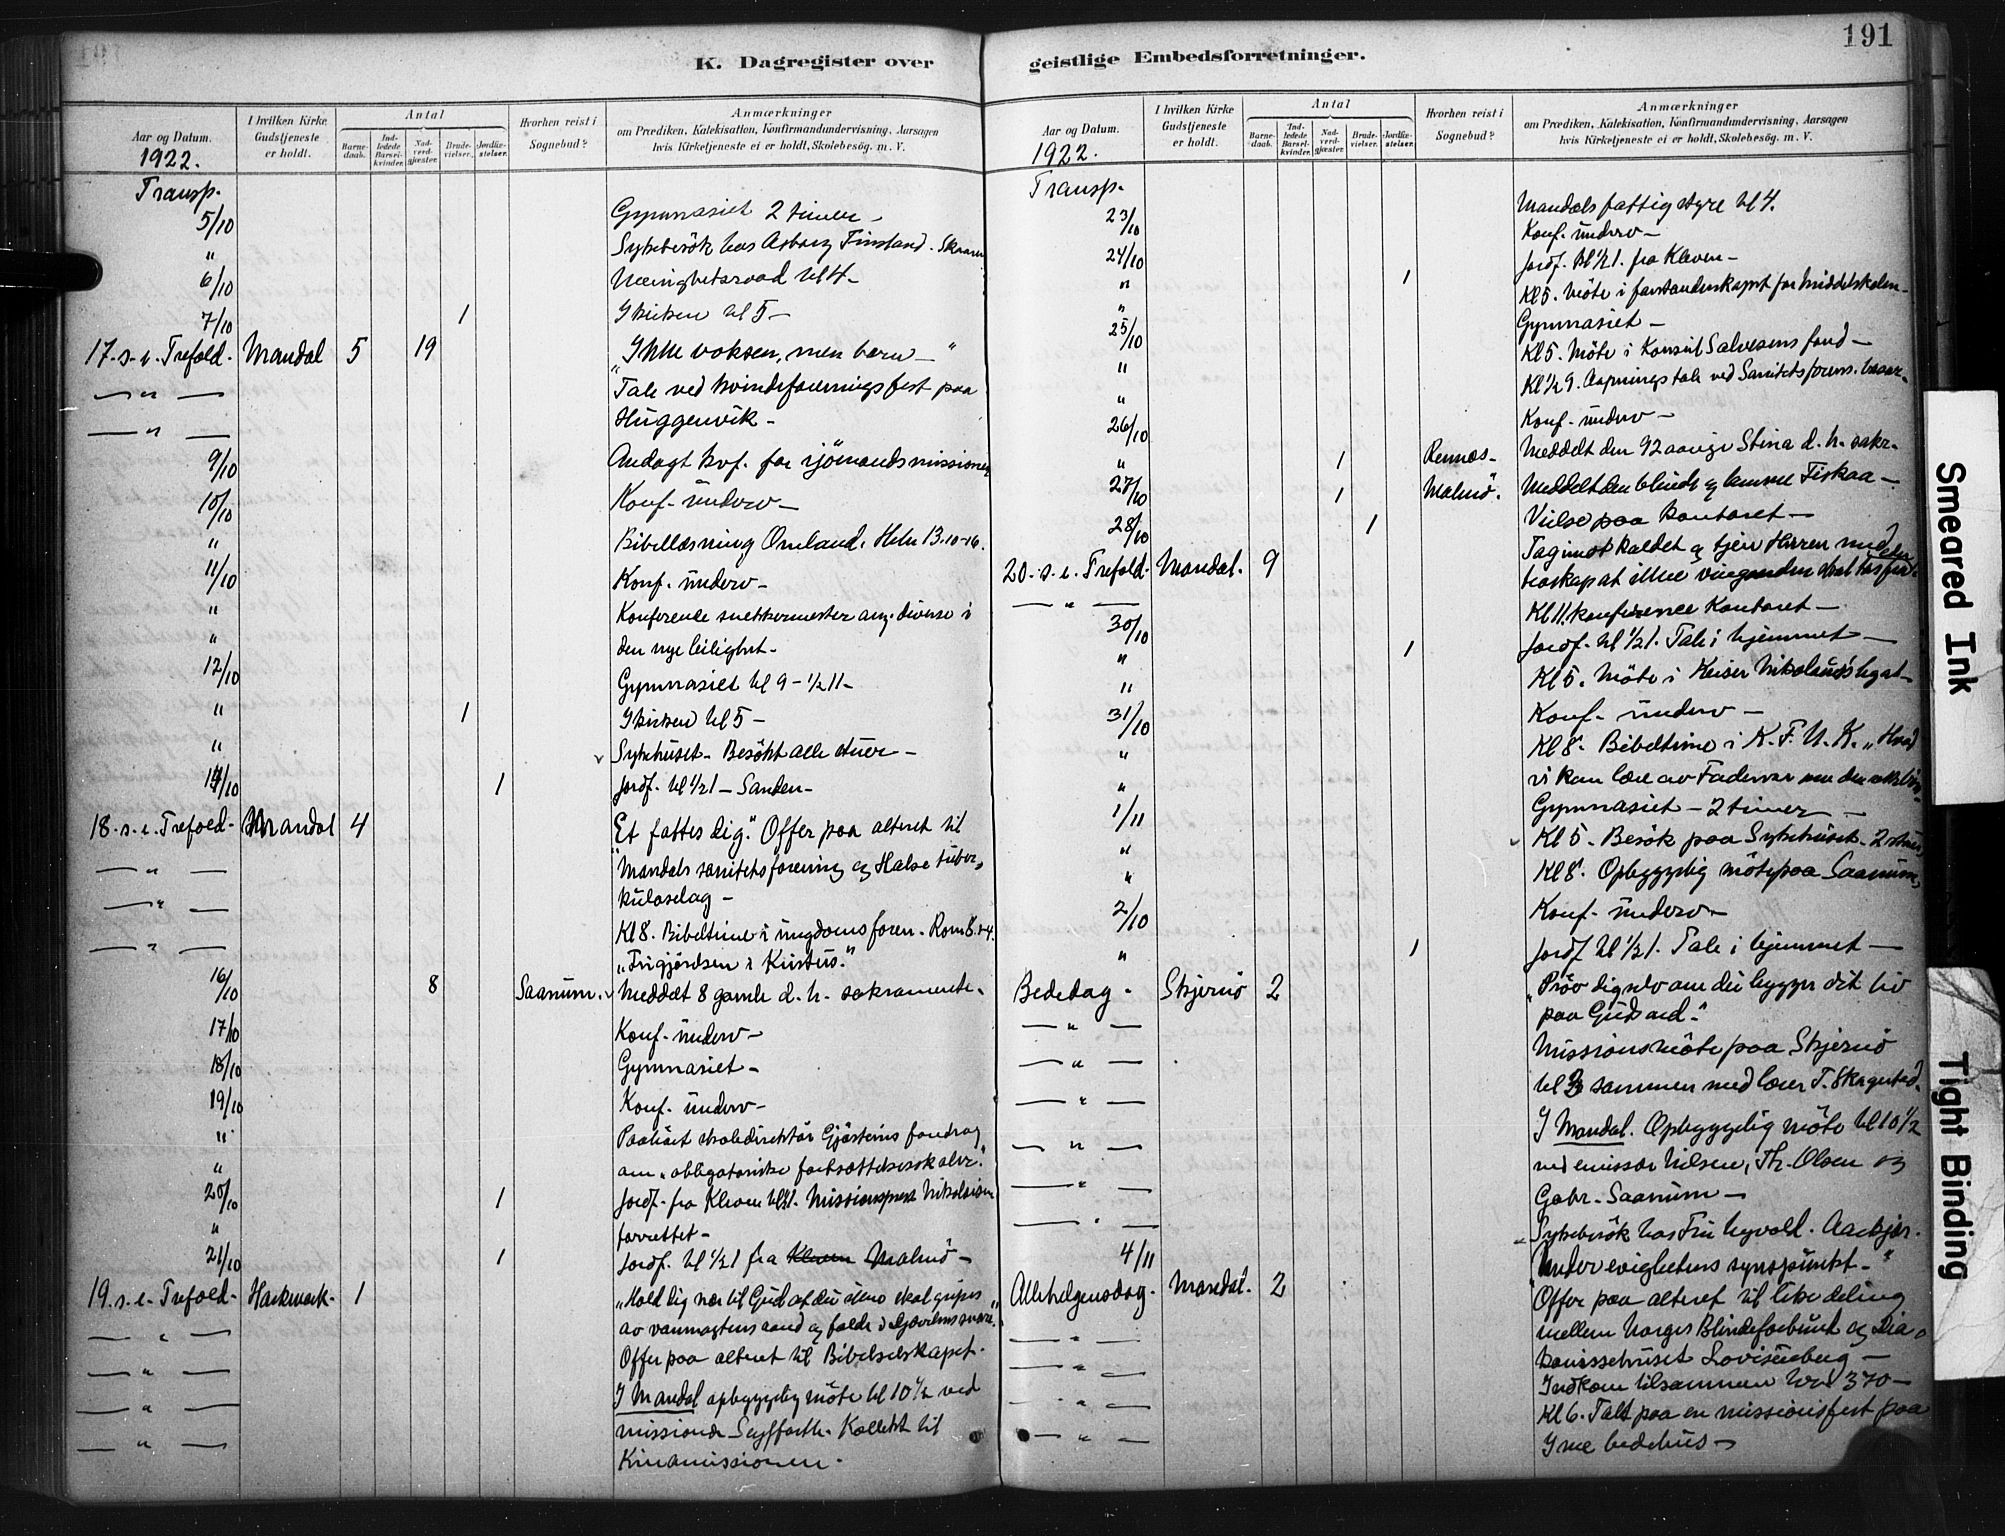 191
K. Dagregister over geistlige Embedsforretninger.
Aar og Datum.
I hvilken Kirke Gudstjeneste er holdt.
Antal
Barnedaab.
Indledede Barselkvinder.
Nadverdgjæster.
Brudevielser.
Jordfæstelser.
Hvorhen reist i Sognebud?
Anmærkninger
om Prædiken, Katekisation, Konfirmandundervisning, Aarsagen
hvis Kirketjeneste ei er holdt, Skolebesøg. m. V.
1922.
Transp.
5/10 Gymnasiet 2 timer -
" Sykebesök hos Asborg Finsland.
6/10 Menighetsraad kl 4 -
7/10 1 I kirken kl 5 -
17. s. e. Trefold. Mandal 5 19 "Ikke voksen, men barn - "
— " — Tale ved kvindeforeningsfest paa
— " — Huggenvik -
9/10 Andagt kvf. for sjömandsmissionen
10/10 Konf. underv -
" Bibellæsning Omland. Hebr 13.10-16.
11/10 Konf. underv -
" Konferende snekkermester ang. diverse i
" den nye leilighet -
12/10 Gymnasiet kl 9 - 1/2 11 -
" 1 I kirken kl 5 -
" Sykehuset - Besökt alle stuer -
14/10 1 Jordf. kl 1/2 1 - Sanden -
18. s. e. Trefold. Mandal 4 "Et fattes dig." Offer paa alteret til
— " — Mandals sanitetsforening og Halse tuber-
— " — kuloselag -
— " — Kl 8. Bibeltime i ungdomsforen. Rom 8.1-4.
"Frigjördsen i Kristus."
16/10 8 Saanum. Meddelt 8 gamle d. h. sakramente.
17/10 Konf. underv -
18/10 Gymnasiet -
19/10 Konf. underv -
" Paahört skoledirektör Gjösteins foredrag
" om "obligatoriske fortsættelsesskoler."
20/10 1 Jordf. fra Kleven kl 1/2 1. Missionsprest Nikolaisen
" forrettet -
21/10 1 Jordf. kl 1/2 1 fra Kleven Malmö -
19. s. e. Trefold. Harkmark. 1 "Hold dig nær til Gud at du ikke skal gripes
— " — av vanmagtens aand og falde i djævelens snare."
— " — Offer paa alteret til Bibelselskapet.
— " — I Mandal opbyggelig möte kl 10 1/2 ved
— " — missionær Seyffarth. Kollekt til
Kinamissionen.
Aar og Datum.
I hvilken Kirke Gudstjeneste er holdt.
Antal
Barnedaab.
Indledede Barselkvinder.
Nadverdgjæster.
Brudevielser.
Jordfæstelser.
Hvorhen reist i Sognebud?
Anmærkninger
om Prædiken, Katekisation, Konfirmandundervisning, Aarsagen
hvis Kirketjeneste ei er holdt, Skolebesøg. m. V.
1922.
Transp. Mandals fattigstyre kl 4.
23/10 Konf. underv -
24/10 1 Jordf. kl 1/2 1. fra Kleven -
" Kl 5. Möte i forstanderskapet for Middelskolen -
" Gymnasiet -
25/10 Kl 5. Möte i Konsul Salvesens fond -
" Kl 1/2 9. Aapningstale ved Sanitetsforens. basar -
" Konf. underv -
26/10 1 Rennes. Meddelt den 92 aarige Stina d. h. sakr.
" 1 Malmö. Meddelt den blinde og lamme Fiskaa -
27/10
28/10 1 Vielse paa kontoret -
20. s. e. Trefold. Mandal. 9 Tag imot kaldet og tjen Herren med den
— " — troskap at ikke vingaarden skal tas fra
30/10 Kl 11. konference Kontoret -
" 1 Jordf. kl 1/2 1. Tale i hjemmet -
" Kl 5. Möte i Keiser Nikolaus's legat -
31/10 Konf. underv -
" Kl 8. Bibeltime i K.F.U.K. "Hvad
" vi kan lære av Fadervor
1/11 Gymnasiet - 2 timer -
" Kl 5. Besök paa Sykehuset. 2 stuer
" Kl 8. Opbyggelig möte paa Saanum.
2/10 Konf. underv -
" 1 Jordf kl 1/2 1. Tale i hjemmet -
Bededag. Skjernö 2 "Pröv dig selv om du bygger dit liv
— " — paa Guds ord."
— " — Missionsmöte paa Skjernö
— " — kl 3 sammen med lærer T. Skagestad.
— " — I Mandal. Opbyggelig möte kl 10 1/2
— " — ved emissær Nilsen, Th. Olsen og
— " — Gabr. Saanum -
Sykebesök hos Fru
4/11 "Under evighetens synspunkt - "
Allehelgensdag. Mandal. 2 Offer paa alteret til like deling
— " — mellem Norges Blindeforbund og Dia-
— " — konissehuset Lovisenberg -
— " — Indkom tilsammen kr 370 -
— " — Kl 6. Talt paa en missionsfest paa
Yme bedehus -
Smeared Ink
Tight Binding